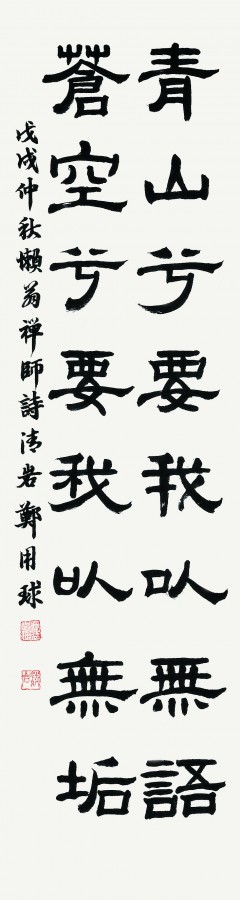 青山兮要我以無語
蒼空兮要我以無垢
戊戌仲秋懶翁禅師詩清岩鄭用球